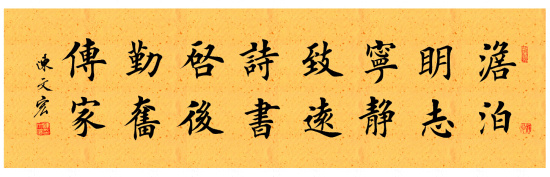 澹泊
明志
寧静
致遠
詩書
啓後
勤奮
傳家
陳文宏